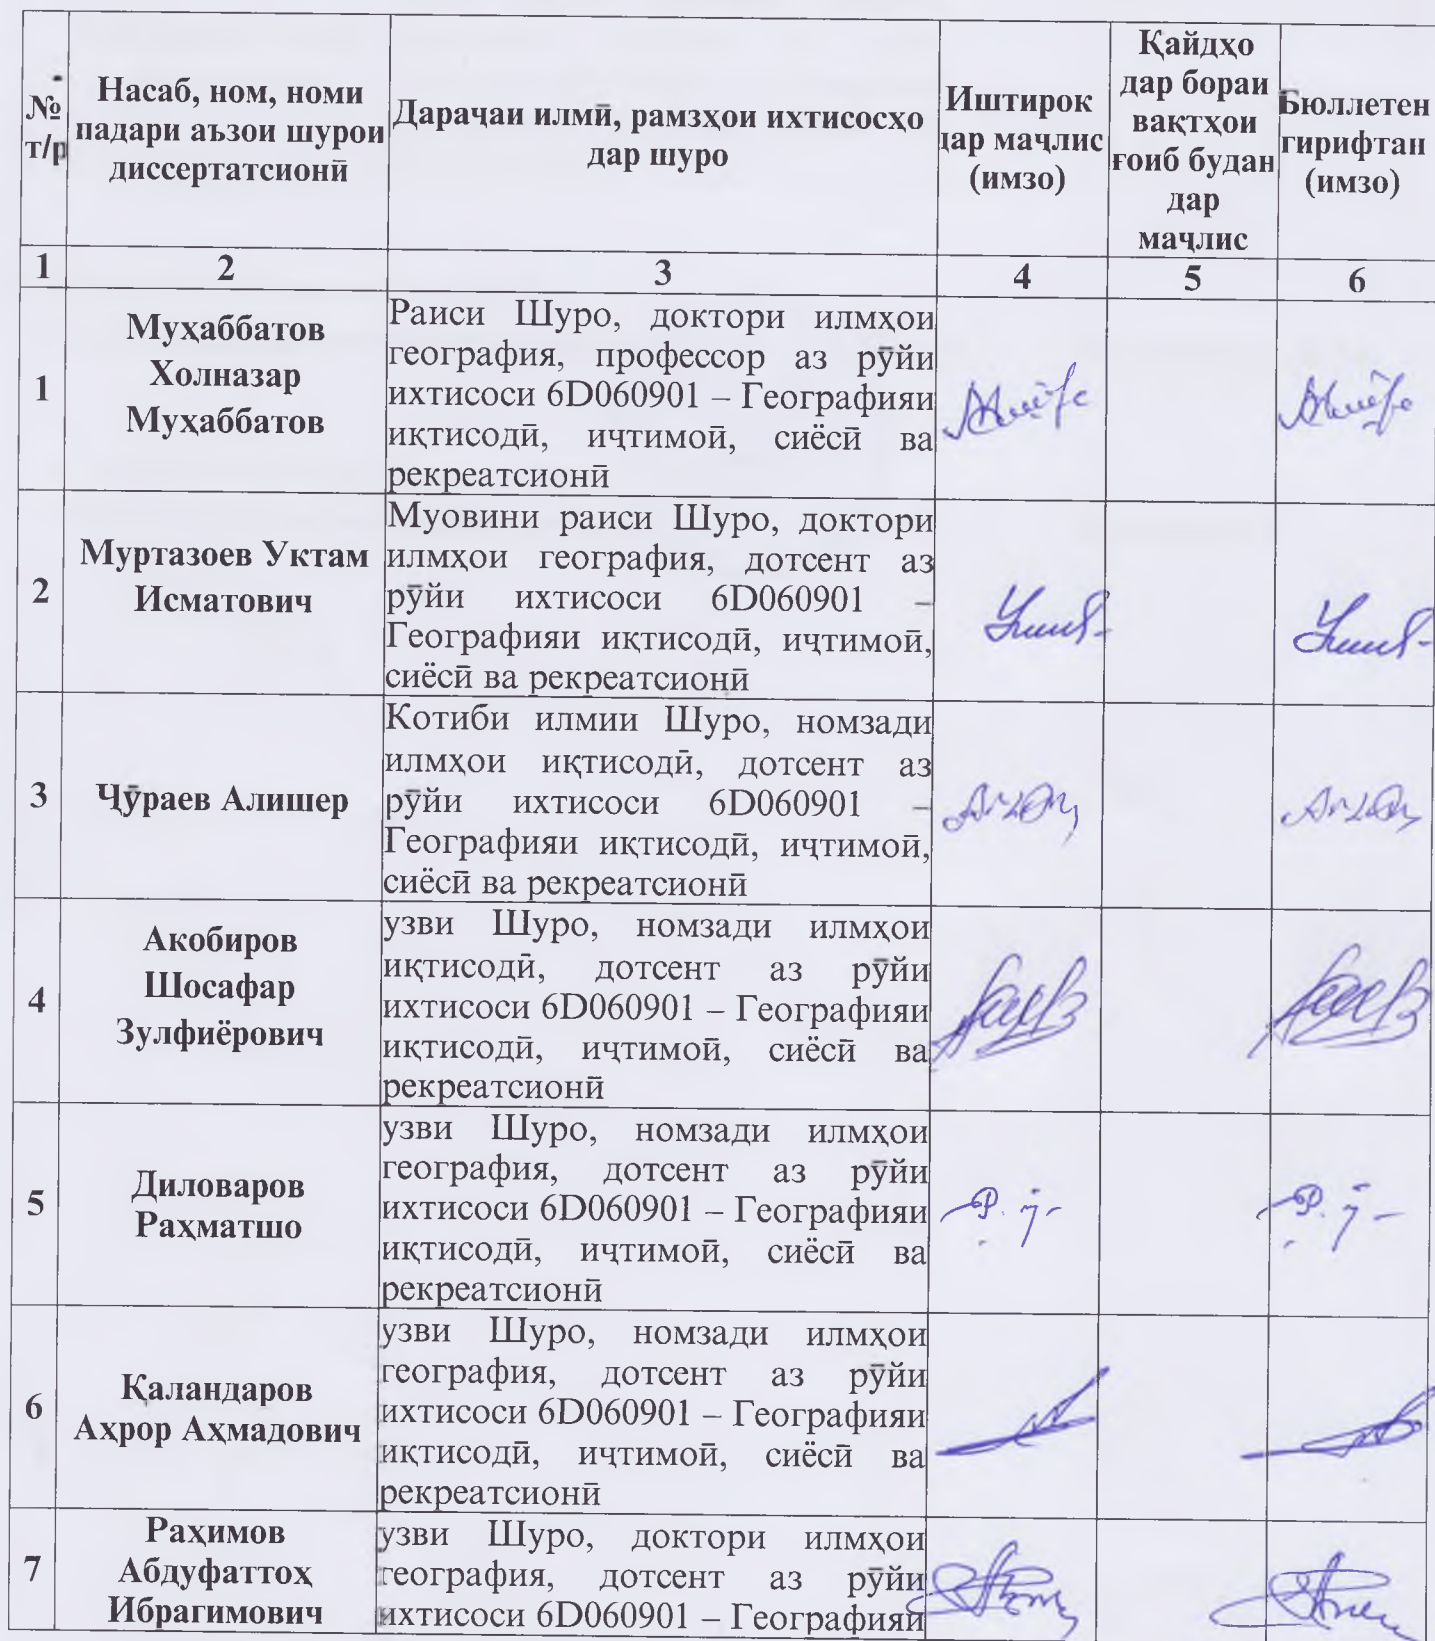 №
т/р
Насаб, ном, номи
падари аъзои шурои
диссертатсионӣ
Дараҷаи илмӣ, рамзҳои ихтисосҳо
дар шуро
Иштирок
дар маҷлис
(имзо)
Қайдҳо
дар бораи
вақтҳои
ғоиб будан
дар
маҷлис
Бюллетен
гирифтан
(имзо)
1 2 3 4 5 6
1
Муҳаббатов
Холназар
Муҳаббатов
Раиси Шуро, доктори илмҳои
география, профессор аз рӯйи
ихтисоси 6D060901 – Географияи
иқтисодӣ, иҷтимоӣ, сиёсӣ ва
рекреатсионӣ
2
Муртазоев Уктам
Исматович
Муовини раиси Шуро, доктори
илмҳои география, дотсент аз
рӯйи ихтисоси 6D060901 –
Географияи иқтисодӣ, иҷтимоӣ,
сиёсӣ ва рекреатсионӣ
3
Ҷӯраев Алишер
Котиби илмии Шуро, номзади
илмҳои иқтисодӣ, дотсент аз
рӯйи ихтисоси 6D060901 –
Географияи иқтисодӣ, иҷтимоӣ,
сиёсӣ ва рекреатсионӣ
4
Акобиров
Шосафар
Зулфиёрович
узви Шуро, номзади илмҳои
иқтисодӣ, дотсент аз рӯйи
ихтисоси 6D060901 – Географияи
иқтисодӣ, иҷтимоӣ, сиёсӣ ва
рекреатсионӣ
5
Диловаров
Раҳматшо
узви Шуро, номзади илмҳои
география, дотсент аз рӯйи
ихтисоси 6D060901 – Географияи
иқтисодӣ, иҷтимоӣ, сиёсӣ ва
рекреатсионӣ
6
Қаландаров
Аҳрор Аҳмадович
узви Шуро, номзади илмҳои
география, дотсент аз рӯйи
ихтисоси 6D060901 – Географияи
иқтисодӣ, иҷтимоӣ, сиёсӣ ва
рекреатсионӣ
7
Раҳимов
Абдуфаттоҳ
Ибрагимович
узви Шуро, доктори илмҳои
география, дотсент аз рӯйи
ихтисоси 6D060901 – Географияи